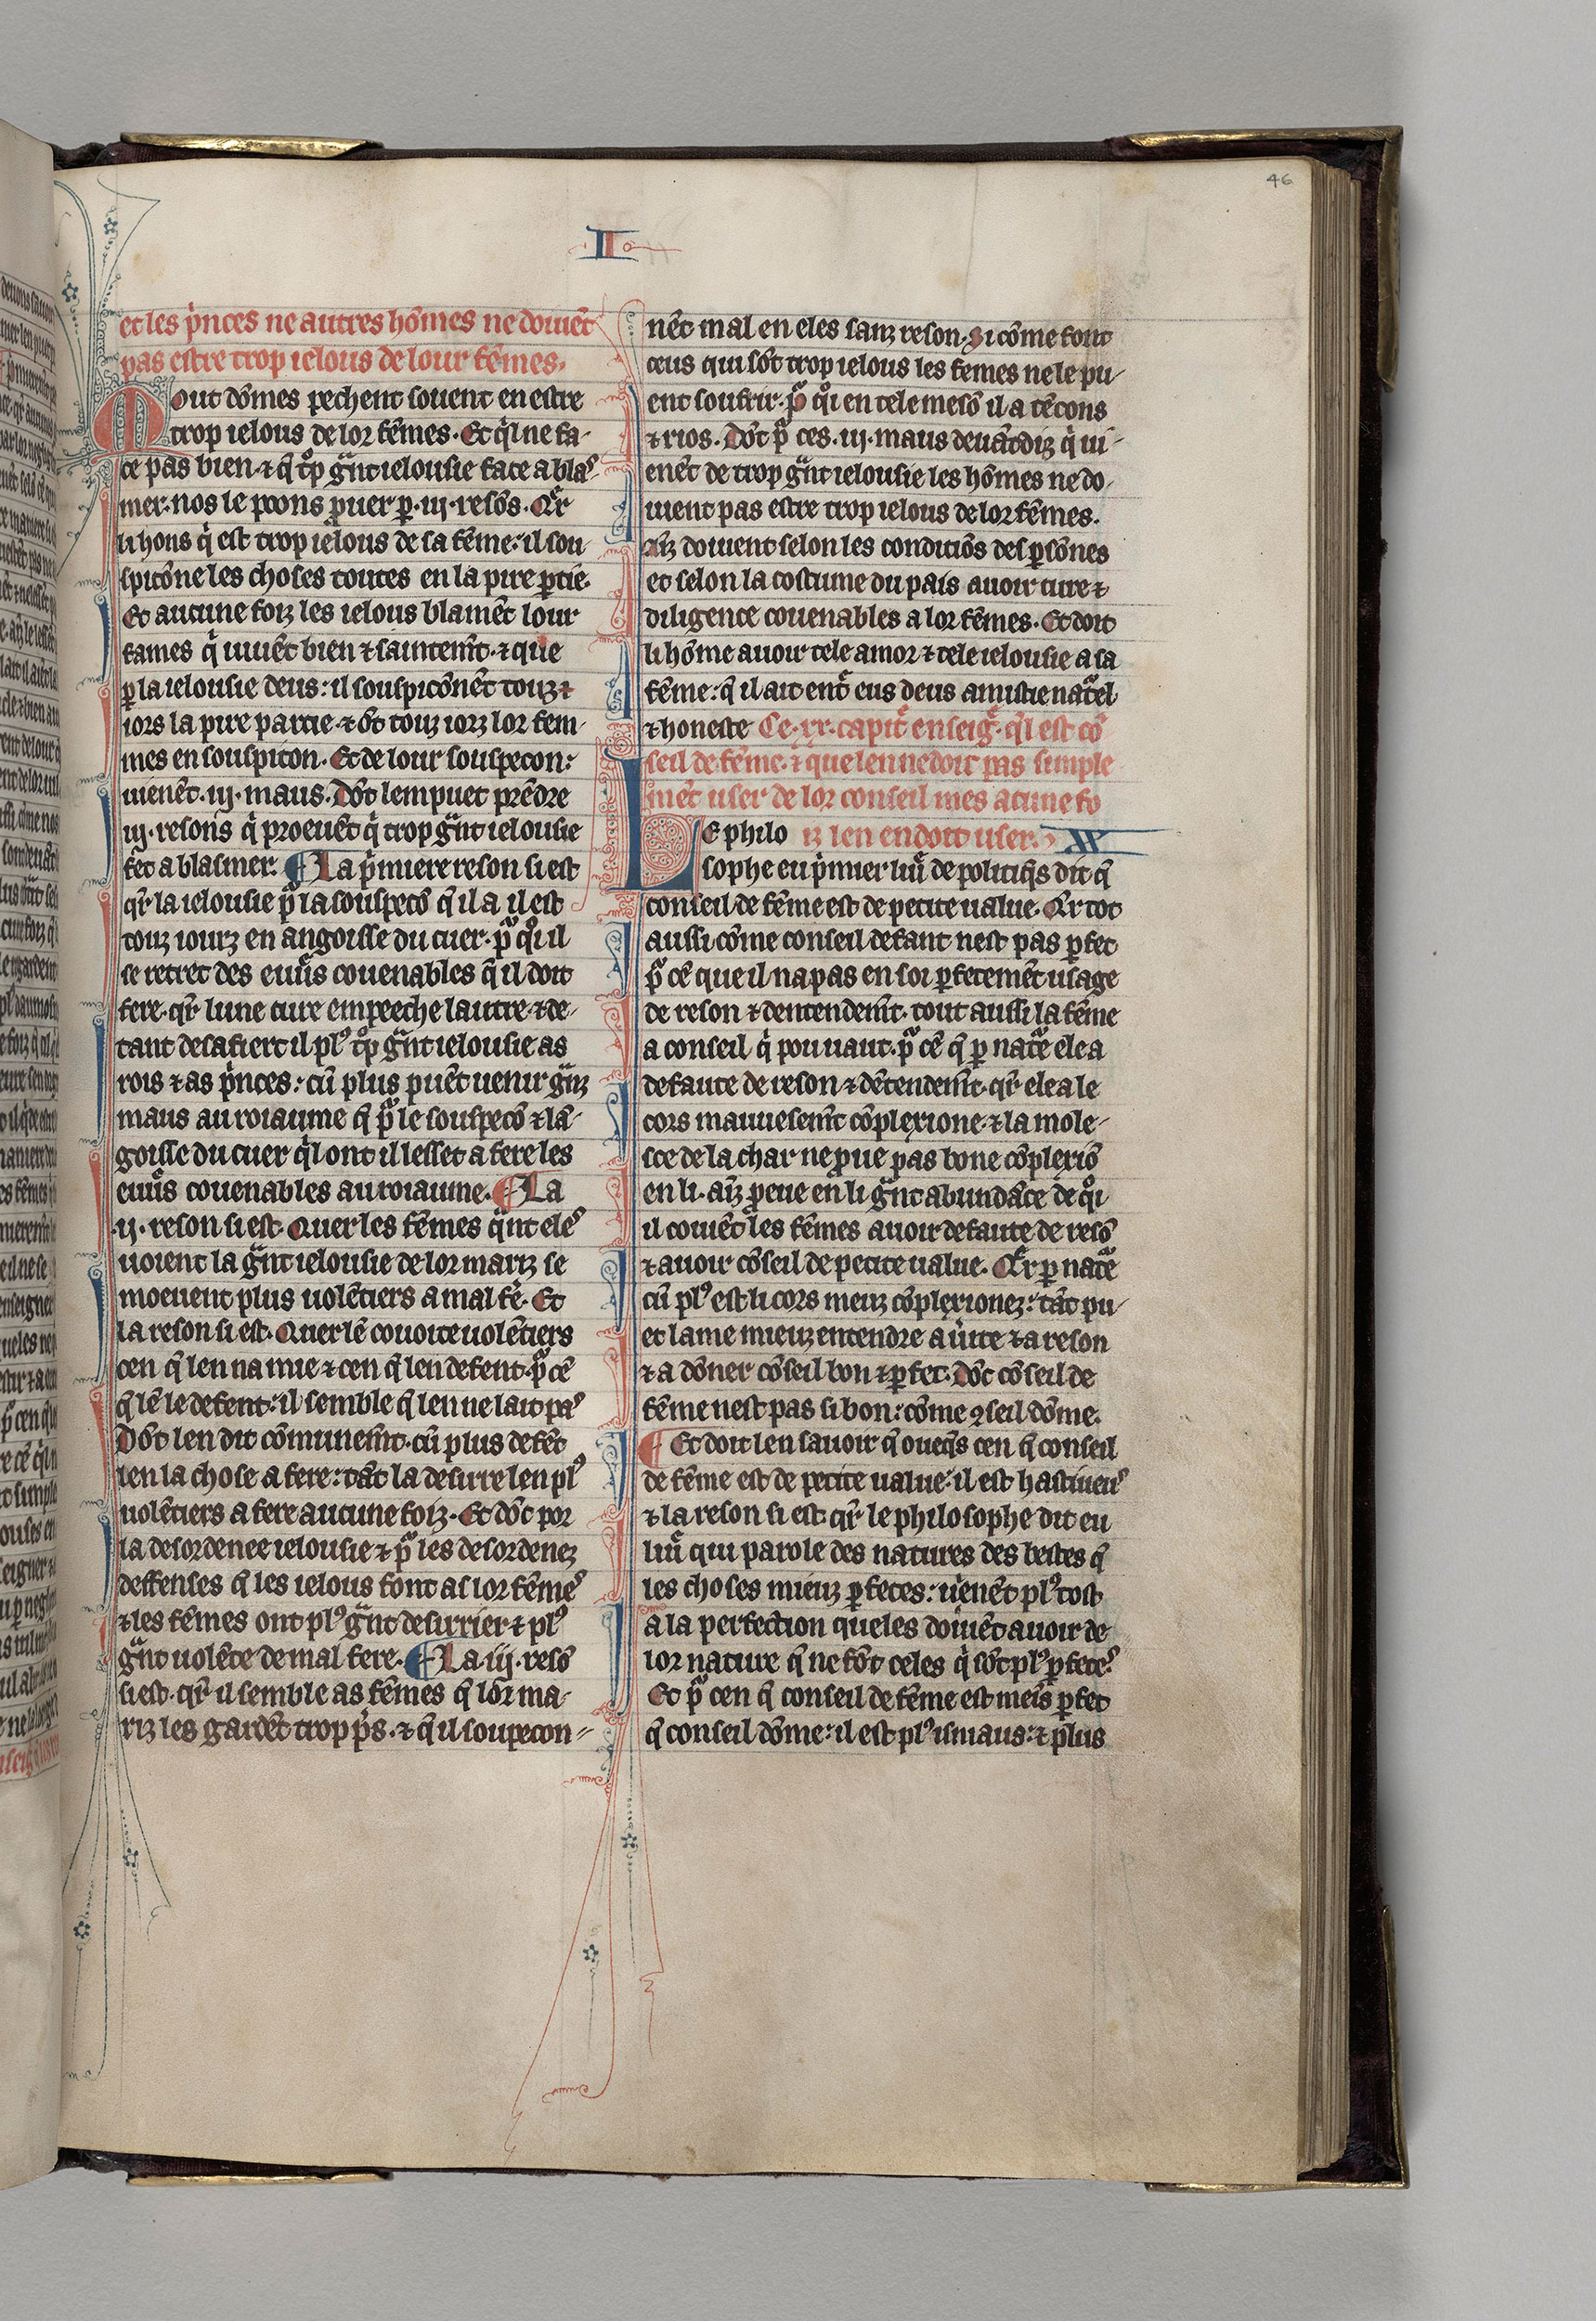 46
II
et les p̉nces ne autres hõmes ne doiuẽt
pas estre trop ielous de lour fẽmes.
Mout dõmes pechent souent en estre
trop ielous de lor fẽmes. Et q̉l ne fa-
ce pas bien. ⁊ q̃ tͦp gͣnt ielousie face a blaˢ-
mer. nos le poons ꝓuer ꝑ .iij. resõs. Qͣr
li hons q̉ est trop ielous de sa fẽme: il sou-
spicõne les choses toutes en la pire ꝑtie.
Et aucune foiz les ielous blamẽt lour
fames q̉ uiuẽt bien ⁊ saintem̃t. ⁊ que
ꝑ la ielousie deus: il souspicõnẽt touz
iors la pire partie. ⁊ õt touz iorz lor fem-
mes en souspicon. Et de lour souspecon:
uienẽt .iij. maus. Dõt lem puet prẽdre
iij. resons q̉ proeuẽt q̉ trop gͣnt ielousie
fet a blasmer. ¶ La p̉miere reson si est
qͣr la ielousie pͣ la souspecõ q̃ il a il est
touz iourz en angoisse du cuer. pͣ qͦi il
se retret des euũs couenables q̃ il doit
fere. qͣr lune cure empeeche lautre. ⁊ de-
tant desafiert il plˢ tͦp gͣnt ielousie as
rois ⁊ as p̉nces: cũ plus puẽt uenir gͣnz
maus au roiaume q̃ pͣ le souspecõ ⁊ lã-
goisse du cuer q̉l ont il lesset a fere les
euũs couenables au roiaume. ¶ La
.ij. reson si est. Quer les fẽmes qͣnt eleˢ
uoient la gͣnt ielousie de lor mariz se
moeuent plus uolẽtiers a mal fẽ. Et
la reson si est. Quer lẽ couoite uolẽtiers
cen q̃ len na mie ⁊ cen q̃ len defent. pͣ cẽ
q̃ lẽ le defent: il semble q̃ len ne lait paˢ
Dõt len dit cõmunem̃t. cũ plus defẽt
len la chose a fere: tãt la desirre len plˢ
uolẽtiers a fere aucune foiz. Et dõc por
la desordenee ielousie ⁊ pͣ les desordenez
deffenses q̃ les ielous font as lor fẽmeˢ
⁊ les fẽmes ont plˢ gͣnt desirrier ⁊ plˢ
gͣnt uolẽte de mal fere. ¶ La .iij. resõ
si est. qͣr il semble as fẽmes q̃ lor ma-
riz les gardẽt trop p̉s. ⁊ q̃ il soupecon-
nẽt mal en eles sanz reson. Si cõme font
ceus qui sõt trop ielous les femes ne le pu-
ent soufrir. pͣ qͦi en tele mesõ il a tẽcons
⁊ rios. Dõt pͣ ces .iij. maus deuãtdiz q̉ ui-
enẽt de trop gͣnt ielousie les hõmes ne do-
iuent pas estre trop ielous de lor fẽmes.
Aĩz doiuent selon les conditiõs des ꝑsõnes
et selon la costume du pais auoir cure ⁊
diligence couenables a lor fẽmes. Et doit
li hõme auoir tele amor ⁊ tele ielousie a sa
fẽme: q̃ il ait ent̃ eus deus amistie natͣel
⁊ honeste Ce .xx. capit̃ enseig̃. q̃l est cõ
seil de fẽme. ⁊ que len ne doit pas simple
mẽt user de lor conseil mes acune fo
Le philo iz len en doit user. XX
sophe eu p̉mier liũ de politiq̃s dit q̃
conseil de fẽme est de petite ualue. Qͣr tot
aussi cõme conseil defant nest pas ꝑfet
pͣ cẽ que il na pas en soi ꝑfetemẽt usage
de reson ⁊ dentendem̃t. tout aussi la fẽme
a conseil q̉ pou uaut. pͣ cẽ q̃ ꝑ natͣe ele a
defaute de reson ⁊ dẽtendem̃t. qͣr ele a le
cors mauuesem̃t cõplexione. ⁊ la mole-
sce de la char ne ꝓue pas bone cõplexiõ
en li. aĩz ꝓeue en li gͣnt abundãce de qͦi
il couiẽt les fẽmes auoir defaute de resõ
⁊ auoir cõseil de petite ualue. Qͣr ꝑ natͣe
cũ plˢ est li cors meuz cõplexionez: tãt pu-
et lame mieuz entendre a ũite ⁊ a reson
⁊ a dõner cõseil bon ⁊ ꝑfet. Dõc cõseil de
fẽme nest pas si bon: cõme ꝯseil dõme.
¶ Et doit len sauoir q̃ oueq̃s cen q̃ conseil
de fẽme est de petite ualue. il est hastiueuˢ
⁊ la reson si est qͣr le philosophe dit eu
liũ qui parole des natures des bestes q̃
les choses mieuz ꝑfetes: uienẽt plˢ tost
a la perfection queles doiuẽt auoir de
lor nature q̃ ne fõt celes q̉ sõt plˢ ꝑfeteˢ.
Et pͣ cen q̃ conseil de fẽme est meĩs ꝑfet
q̃ conseil dõme: il est plˢ isniaus: ⁊ plus